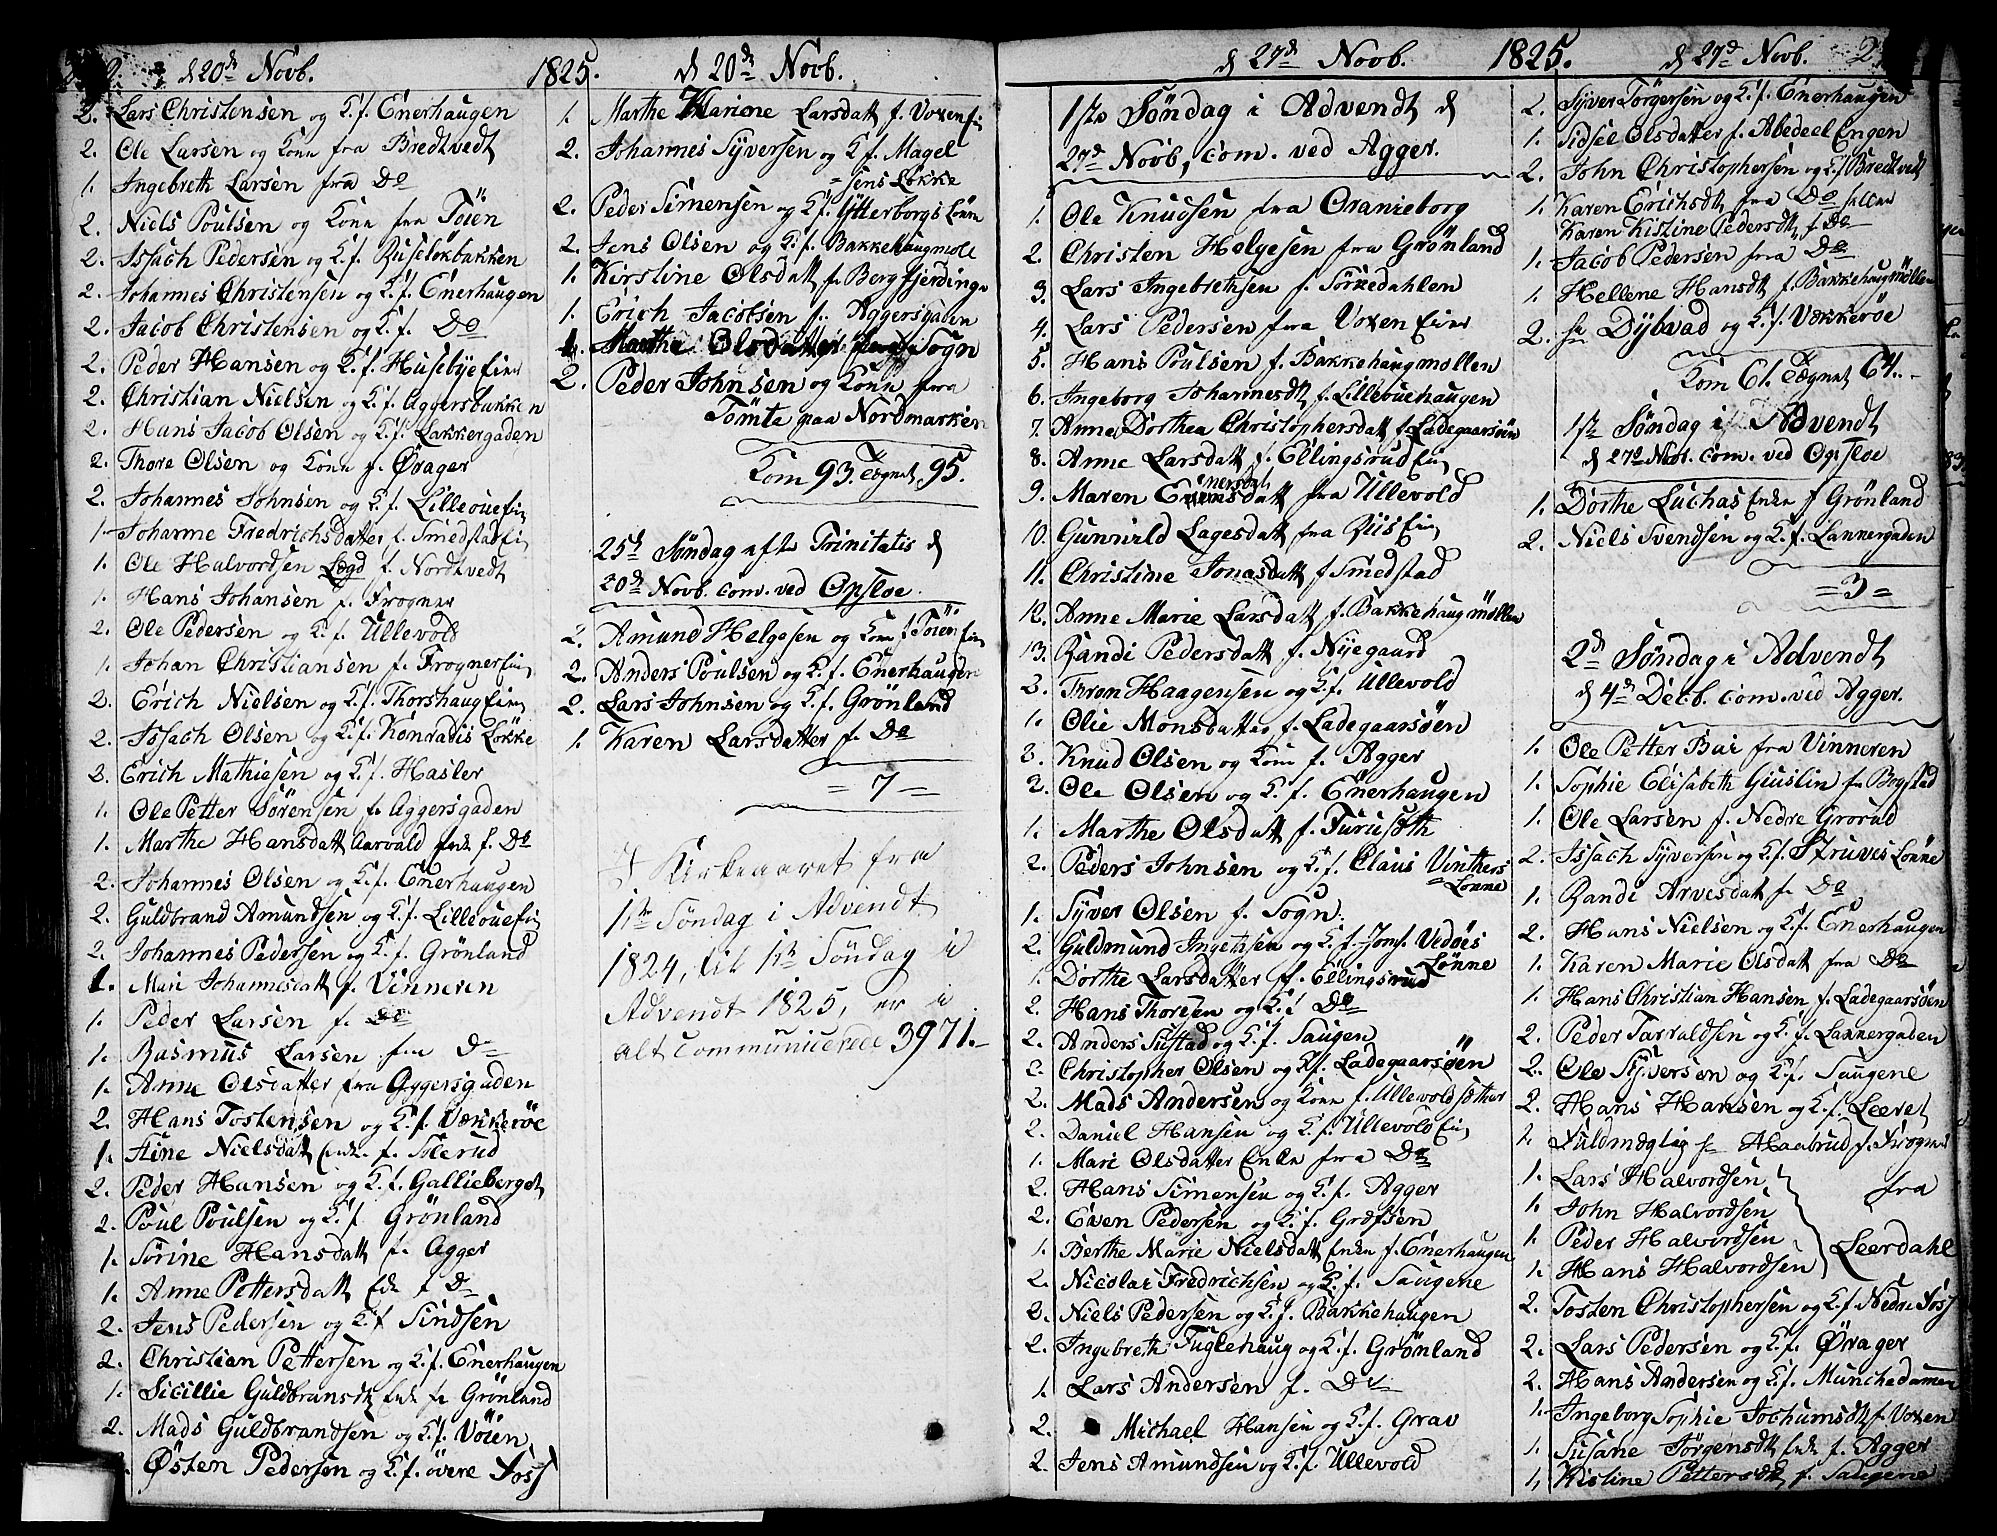 d 20de Novb. 1825. d 20de Novb.
2. Lars Christensen og K. f. Enerhaugen
2. Ole Larsen og Konn fra Bredtvedt
1. Ingebreth Larsen fra Do
2. Niels Poulsen og Konn fra Töien
2. Issach Pedersen og K. f. Ruseløkbakken
2. Johannes Christensen og K. f. Enerhaugen
2. Jacob Christensen og K. f. Do
2. Peder Hansen og K. f. Husebye Ein
2. Christian Nielsen og K. f. Aggersbakken
2. Hans Jacob Olsen og K. f. Lakkergaden
2. Thore Olsen og Konn f. Ørager
2. Johannes Johnsen og K. f. Lilleoue Ein
1. Johanne Fredrichsdatter f. Smedstad Ein
1. Ole Halvordsen Logd f. Nordtvedt
1. Hans Johansen f. Frogner
2. Ole Pedersen og K. f. Ullevold
1. Johan Christiansen f. Frogner Ein
2. Erich Nielsen og K. f. Thorshaug Ein
2. Issach Olsen og K. f. Konradis Løkke
2. Erich Mathiesen og K. f. Hasler
1. Ole Petter Sörensen f. Aggersgaden
1. Marthe Hansdatt Aarvald Enk f. Do
2. Johannes Olsen og K. f. Enerhaugen
2. Guldbrand Amundsen og K. f. Lilleoue Ein
2. Johannes Pedersen og K. f. Grönland
1. Mari Johannesdatt f. Vinneren
1. Peder Larsen f. Do
1. Rasmus Larsen fra Do
1. Anne Olsdatter fra Aggersgaden
2. Hans Tostensen og K. f. Vækkerøe
1. Stine Nielsdatt Enke f. Tolerud
2. Peder Hansen og K. f. Gallieberget
2. Poul Poulsen og K. f. Grönland
1. Sörine Hansdatt f. Agger
1. Anne Pettersdatt Enk f Do
2. Jens Pedersen og K. f. Sindsen
2. Christian Pettersen og K. f. Enerhaugen
1. Sicillie Guldbransdt Enk fr Grönland
2. Mads Guldbrandsen og K. f. Vöien
Østen Pedersen og K. f. övere Foss
1. Marthe Marione Larsdatt f. Voxen Ein
2. Johannes Syversen og K. f. Magel
=sens Løkke
2. Peder Simensen og K. f. Ytterborgs Lönne
2. Jens Olsen og K. f. Bakkehaugmöle
1. Kirstine Olsdatt f. Bergfjerdinge
1. Erich Jacobsen f. Aggersgaden
1. Marthe Olsdatter fra Sogn
2. Peder Johnsen og Konn fra
Tömte paa Nordmarken
Kom 93. Tegnet 95.
25de Søndag efter Trinitatis d
20de Novb. com. ved Opsloe.
2. Amund Helgesen og Kon f Töien Ein
2. Anders Poulsen og K. f. Enerhaugen
2. Lars Johnsen og K. f. Grönland
1. Karen Larsdatter f. Do
= 7 =
I Kirkeaaret fra
1ste Søndag i Advendt
1824, til 1ste Søndag i
Advendt 1825, er i
alt communicerede 3971.
d 27de Novb. 1825. d 27de Novb.
1ste Søndag i Advendt d
27de Novb, com. ved Agger.
1. Ole Knudsen fra Oranieborg
2. Christen Helgesen fra Grönland
3. Lars Ingebrethsen f. Sörkedahlen
4. Lars Pedersen fra Voxen Ein
5. Hans Poulsen f. Bakkehaugmøllen
6. Ingeborg Johannesdt f. Lilleouehaugen
7. Anne Dorthea Christophersdatt f Ladegaarsöen
8. Anne Larsdatt f. Ellingsrud Ein
9. Maren Einersdatt fra Ullevold
10. Gunnild Lagesdatt fra Riis Ein
11. Christine Jonasdatt f Smedstad
12. Anne Marie Larsdatt f. Bakkehaugmøllen
13. Randi Pedersdatt f. Nyegaard
2. Thron Haagensen og K. f. Ullevold
1. Olie Monsdatter f. Ladegaarsøen
2. Knud Olsen og Kon f. Agger
2. Ole Olsen og K. f. Enerhaugen
1. Marthe Olsdatt f. Furusöth
2. Peders Johnsen og K. f. Claus Vinthers
=Lønne
1. Syver Olsen f. Sogn.
2. Guldmund Ingensen og K. f. Jonf. Vedöes
Lønne
1. Dorthe Larsdatter f. Ellingsrud
2. Hans Thoresen og K. f Do
2. Anders Sustad og K. f. Saugen
2. Christopher Olsen og K. f. Ladegaarsøen
2. Mads Andersen og Konn f. Ullevoldsæther
2. Daniel Hansen og K. f. Ullevold Ein
1. Mari Olsdatter Enke fra Do
2. Hans Simensen og K. f. Agger
2. Even Pedersen og K. f. Grefsen
1. Berthe Marie Nielsdatt Enke f. Enerhaugen
2. Nicolai Fredrichsen og K. f. Saugene
2. Niels Pedersen og K. f. Bakkehaugen
2. Ingebreth Fuglehaug og K. f. Grönland
1. Lars Andersen f. Do
2. Michael Hansen og K. f. Grav
2. Jens Amundsen og K. f. Ullevold
2. Syver Törgersen og K. f. Enerhaugen
1. Sidsel Olsdatter f. Abedeel Engen
2. John Christophersen og K. f Bredtvedt
1. Karen Erichsdt fra Do
Karen Kistine Pedersdt f. Do
1. Jacob Pedersen fra Do
1. Hellene Hansdt f. Bakkehaugmöllen
2. Hr Dybvad og K. f. Vækkerøe
Kom 61. Tegnet 64.
1ste Søndag i Advendt
d 27de Novb. com. ved Opsloe
1. Dorthe Luchas Enke f Grönland
2. Niels Svendsen og K. f. Lannergaden
= 3 =
2de Søndag i Advendt
d 4de Decb. com. ved Agger.
1. Ole Petter Bai fra Vinneren
1. Sophie Elisabeth Giuslin fr Bogstad
1. Ole Larsen f. Nedre Grorud
2. Issach Syversen og K. f. Struves Lønne
1. Randi Arvesdatt f. Do
2. Hans Nielsen og K. f. Enerhaugen
1. Karen Marie Olsdatt fra Do
1. Hans Christian Hansen f. Ladegaarsöen
2. Peder Tarraldsen og K. f. Lannergaden
2. Ole Syversen og K. f. Saugene
2. Hans Hansen og K. f. Leeret
Fuldmægtig Hr Haabrud f. Frogner
1. Lars Halvordsen
1. John Halvordsen fra
1. Peder Halvordsen Leerdahl
1. Hans Halvordsen
2. Tosten Christophersen og K. f Nedre Foss
2. Lars Pedersen og K. f. Ørager
2. Hans Andersen og K. f. Munchedamen
1. Ingeborg Sophie Jochumsdt f. Voxen
1. Susane Jörgensdt Enk f. Agger
1. Kistine Pettersdt f. Saugene